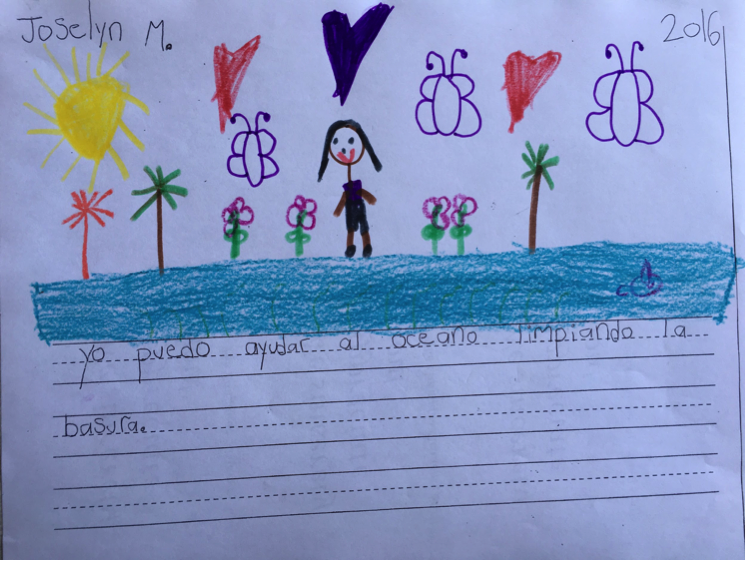 Joselyn M.
2016
yo puedo ayudar al oceano limpiando la
basura.